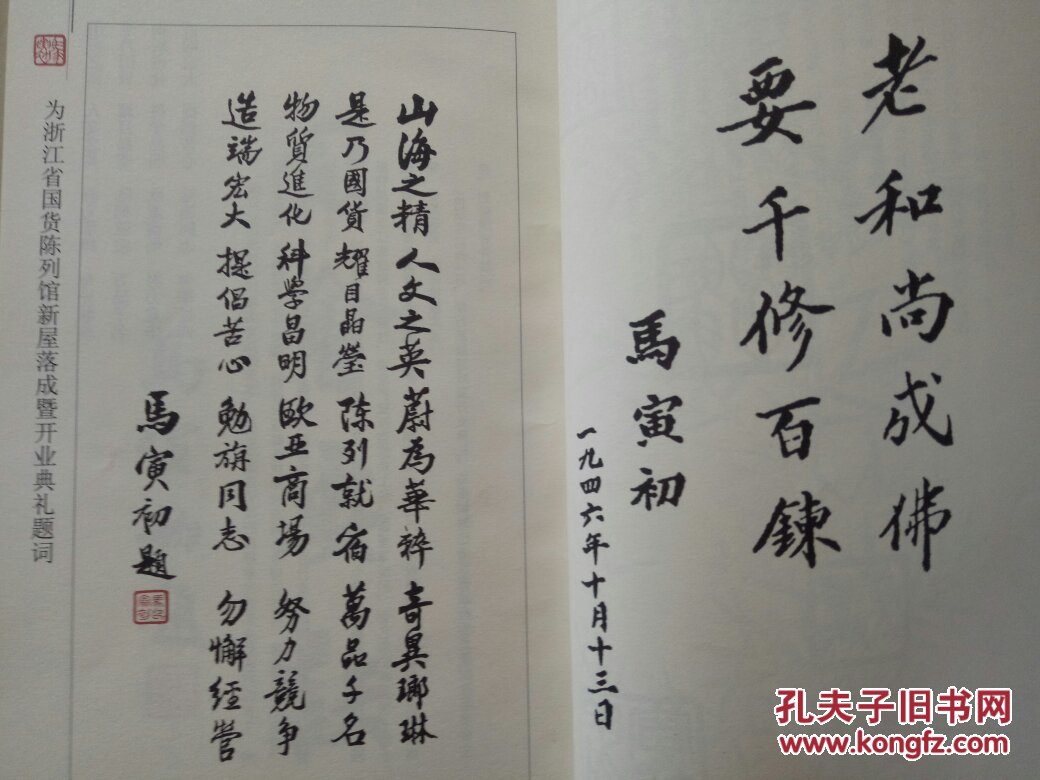 老和尚成佛
要千修百鍊
馬寅初
一九四六年十月十三日
山海之精 人文之英 蔚為華粹 奇異瑯琳
是乃國貨 耀目晶瑩 陈列就宿 萬品千名
物質進化 科學昌明 歐亚商場 努力競争
造端宏大 提倡苦心 勉旃同志 勿懈經營
馬寅初題
为浙江省国货陈列馆新屋落成暨开业典礼题词
孔夫子旧书网
www.kongfz.com